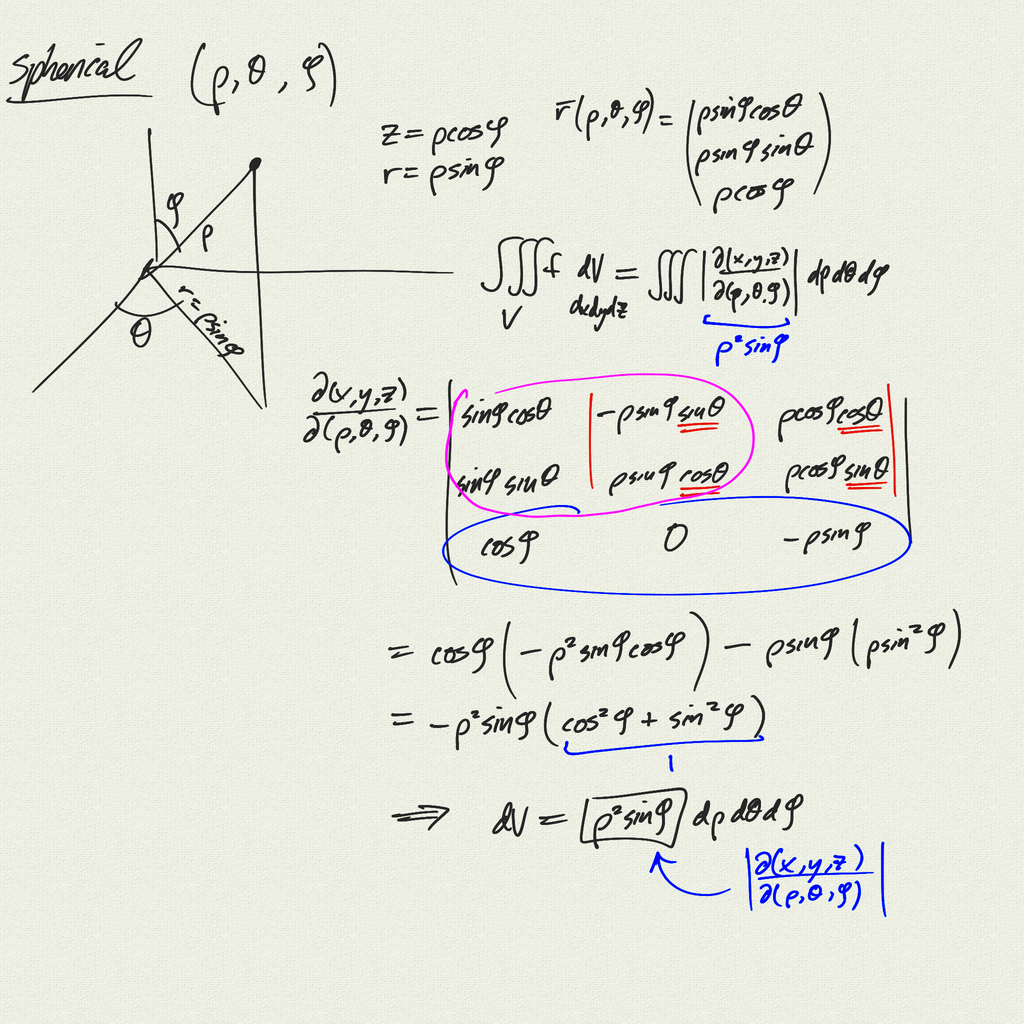 Spherical (ρ, θ, φ)
z = ρcosφ
r = ρsinφ
r̄(ρ,θ,φ) = (ρsinφcosθ
ρsinφsinθ
ρcosφ)
φ
ρ
θ
r=ρsinφ
∭f dV = ∭|∂(x,y,z)/∂(ρ,θ,φ)| dρdθdφ
V dxdydz
ρ²sinφ
∂(x,y,z)/∂(ρ,θ,φ) = | sinφcosθ -ρsinφsinθ ρcosφcosθ
sinφsinθ ρsinφcosθ ρcosφsinθ
cosφ 0 -ρsinφ |
= cosφ(-ρ²sinφcosφ) - ρsinφ(ρsin²φ)
= -ρ²sinφ(cos²φ + sin²φ)
1
⇒ dV = ρ²sinφ dρdθdφ
|∂(x,y,z)/∂(ρ,θ,φ)|